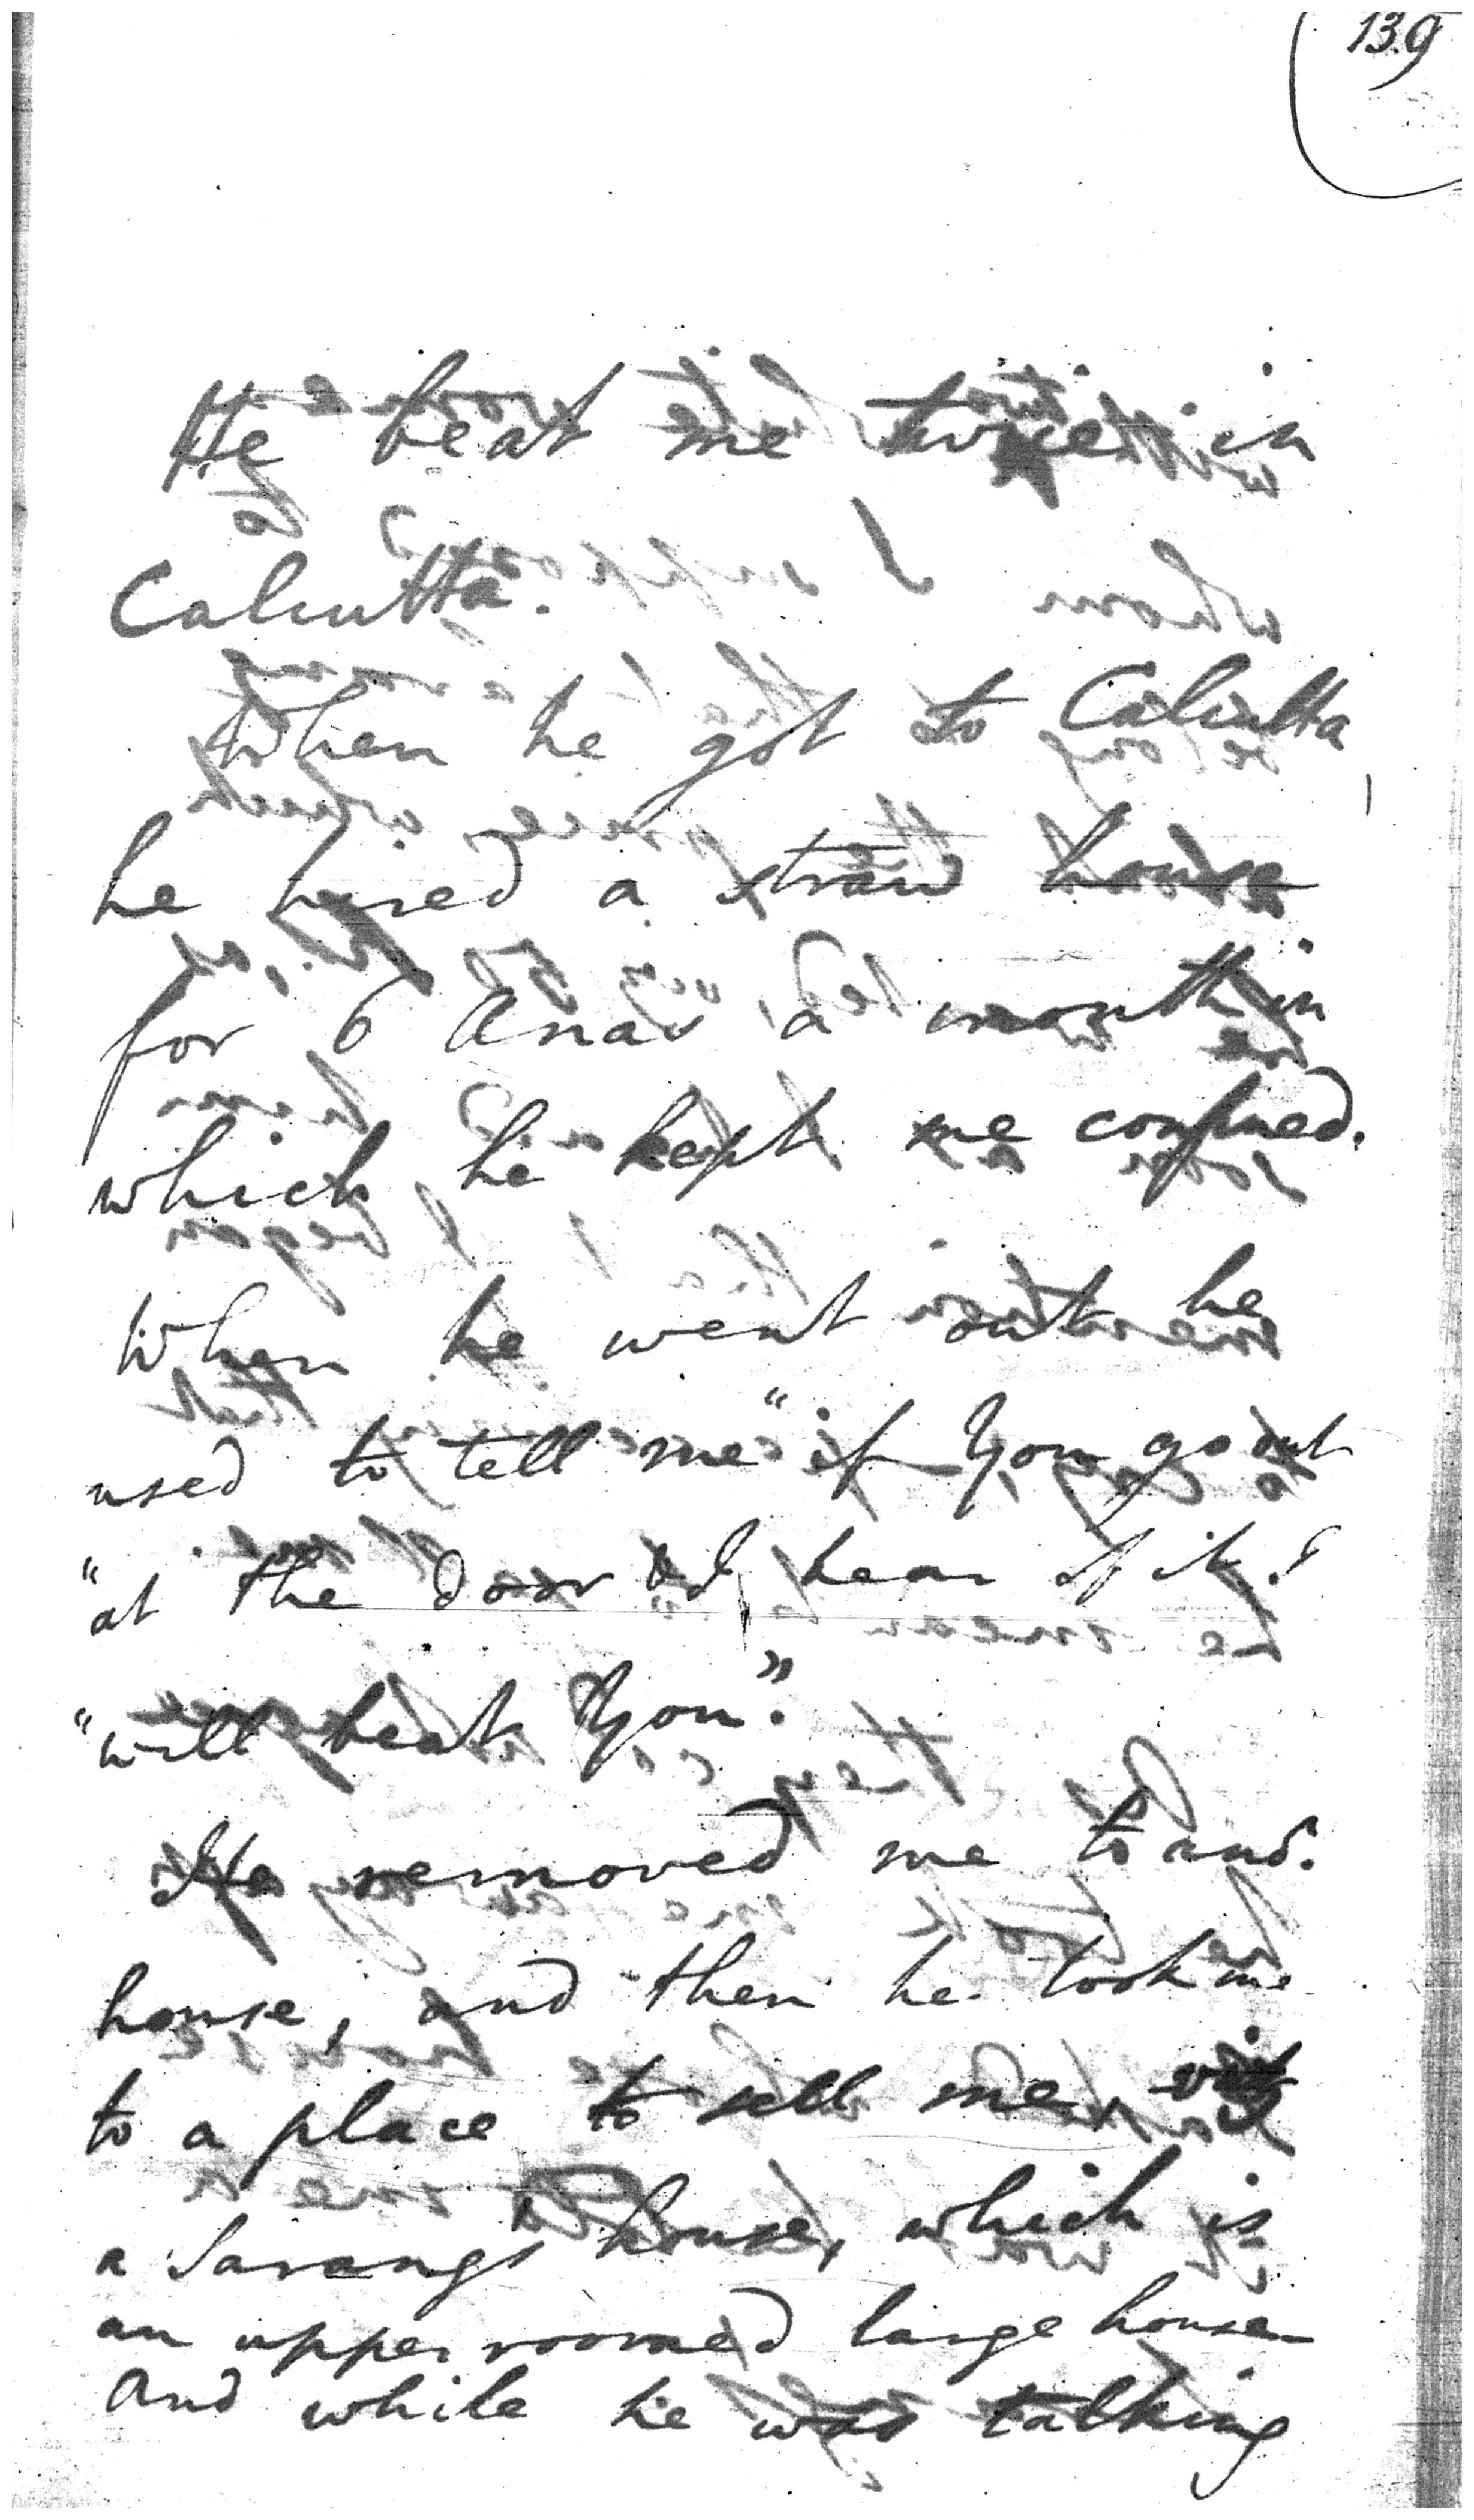 139
He beat me twice in
Calcutta.
When he got to Calcutta
he hired a straw house
for 6 Anas a month in
which he kept me confined.
When he went out he
used to tell me "if You go out
"at the door & I hear of it I
"will beat You."
He removed me to and.
house, and then he took me
to a place to sell me, viz
a Sarangs house, which is
an upper roomed large house
And while he was talking